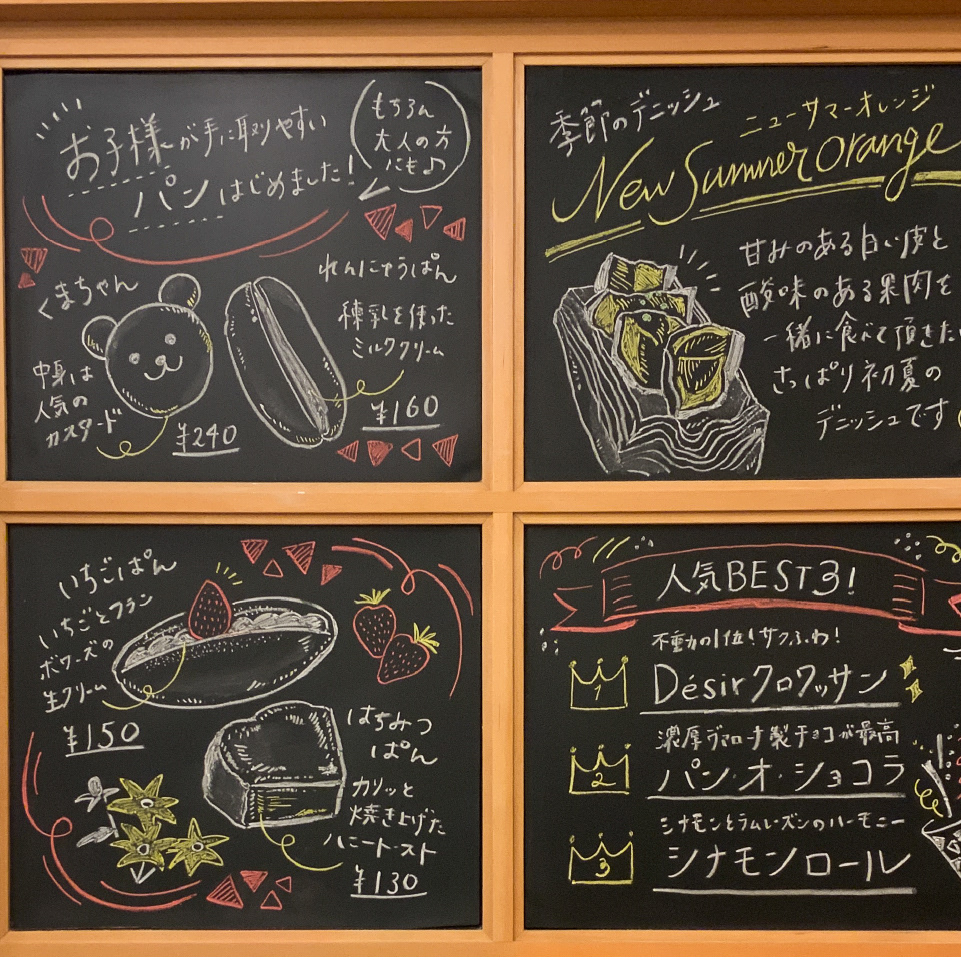 お子様が手に取りやすい
パンはじめました!
もちろん
大人の方
にも♪
くまちゃん
中身は
人気の
カスタード
¥240
れんにゅうぱん
練乳を使った
ミルククリーム
¥160
季節のデニッシュ
ニューサマーオレンジ
New Summer Orange
甘みのある白い皮と
酸味のある果肉を
一緒に食べて頂きたい
さっぱり初夏の
デニッシュです
いちごぱん
いちごとフラン
ボワーズの
生クリーム
¥150
はちみつ
ぱん
カリッと
焼き上げた
ハニートースト
¥130
人気BEST3!
不動の1位!サクふわ!
1
Désirクロワッサン
濃厚ヴァローナ製チョコが最高
2
パン・オ・ショコラ
シナモンとラムレーズンのハーモニー
3
シナモンロール